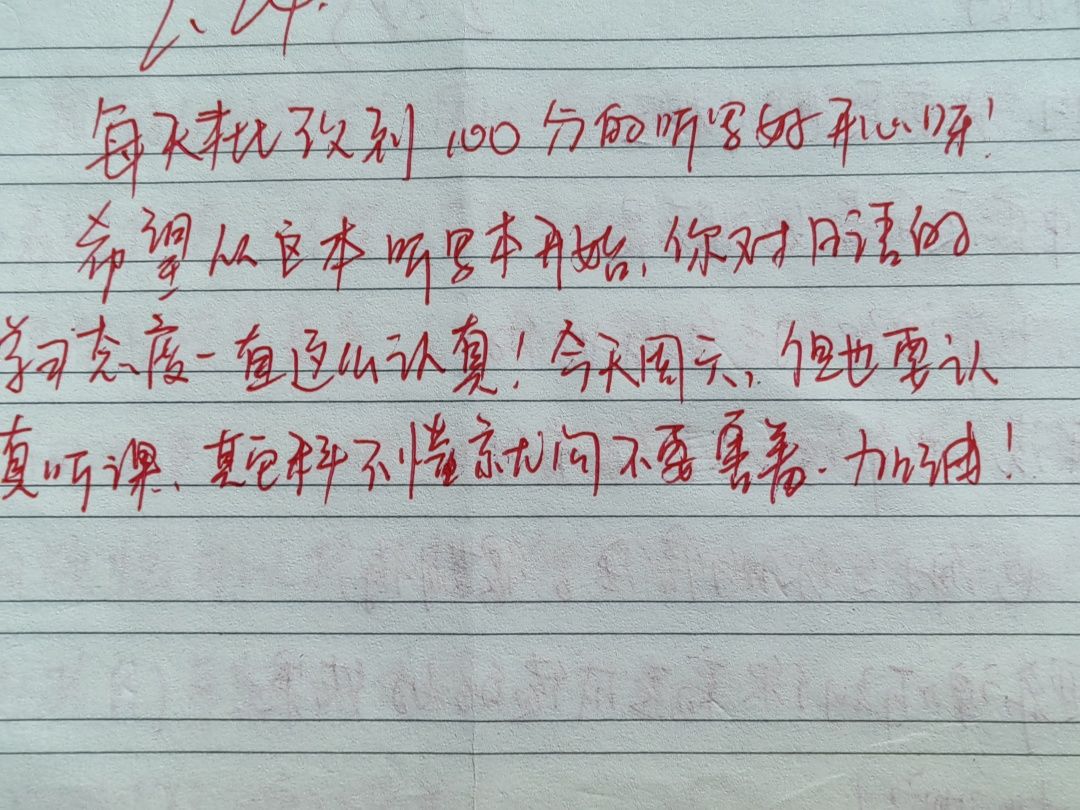 2.24.
每天批改到100分的听写好开心呀！
希望从这本听写本开始，你对日语的
学习态度一直这么认真！今天周六，但也要认
真听课、其它科不懂就问不要害羞.加油！